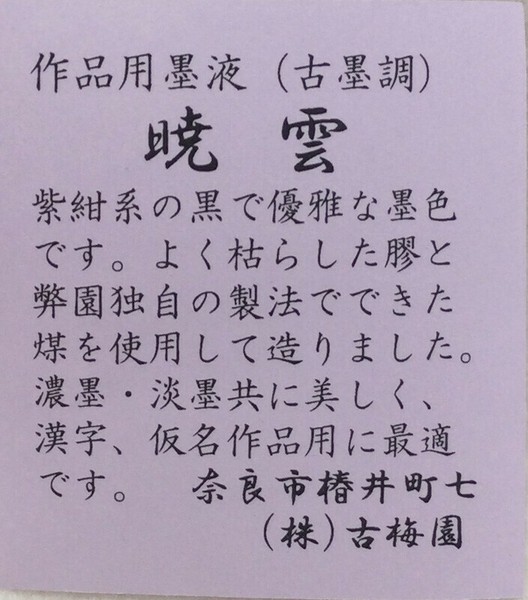 作品用墨液（古墨調）
暁雲
紫紺系の黒で優雅な墨色
です。よく枯らした膠と
弊園独自の製法でできた
煤を使用して造りました。
濃墨・淡墨共に美しく、
漢字、仮名作品用に最適
です。 奈良市椿井町七
（株）古梅園